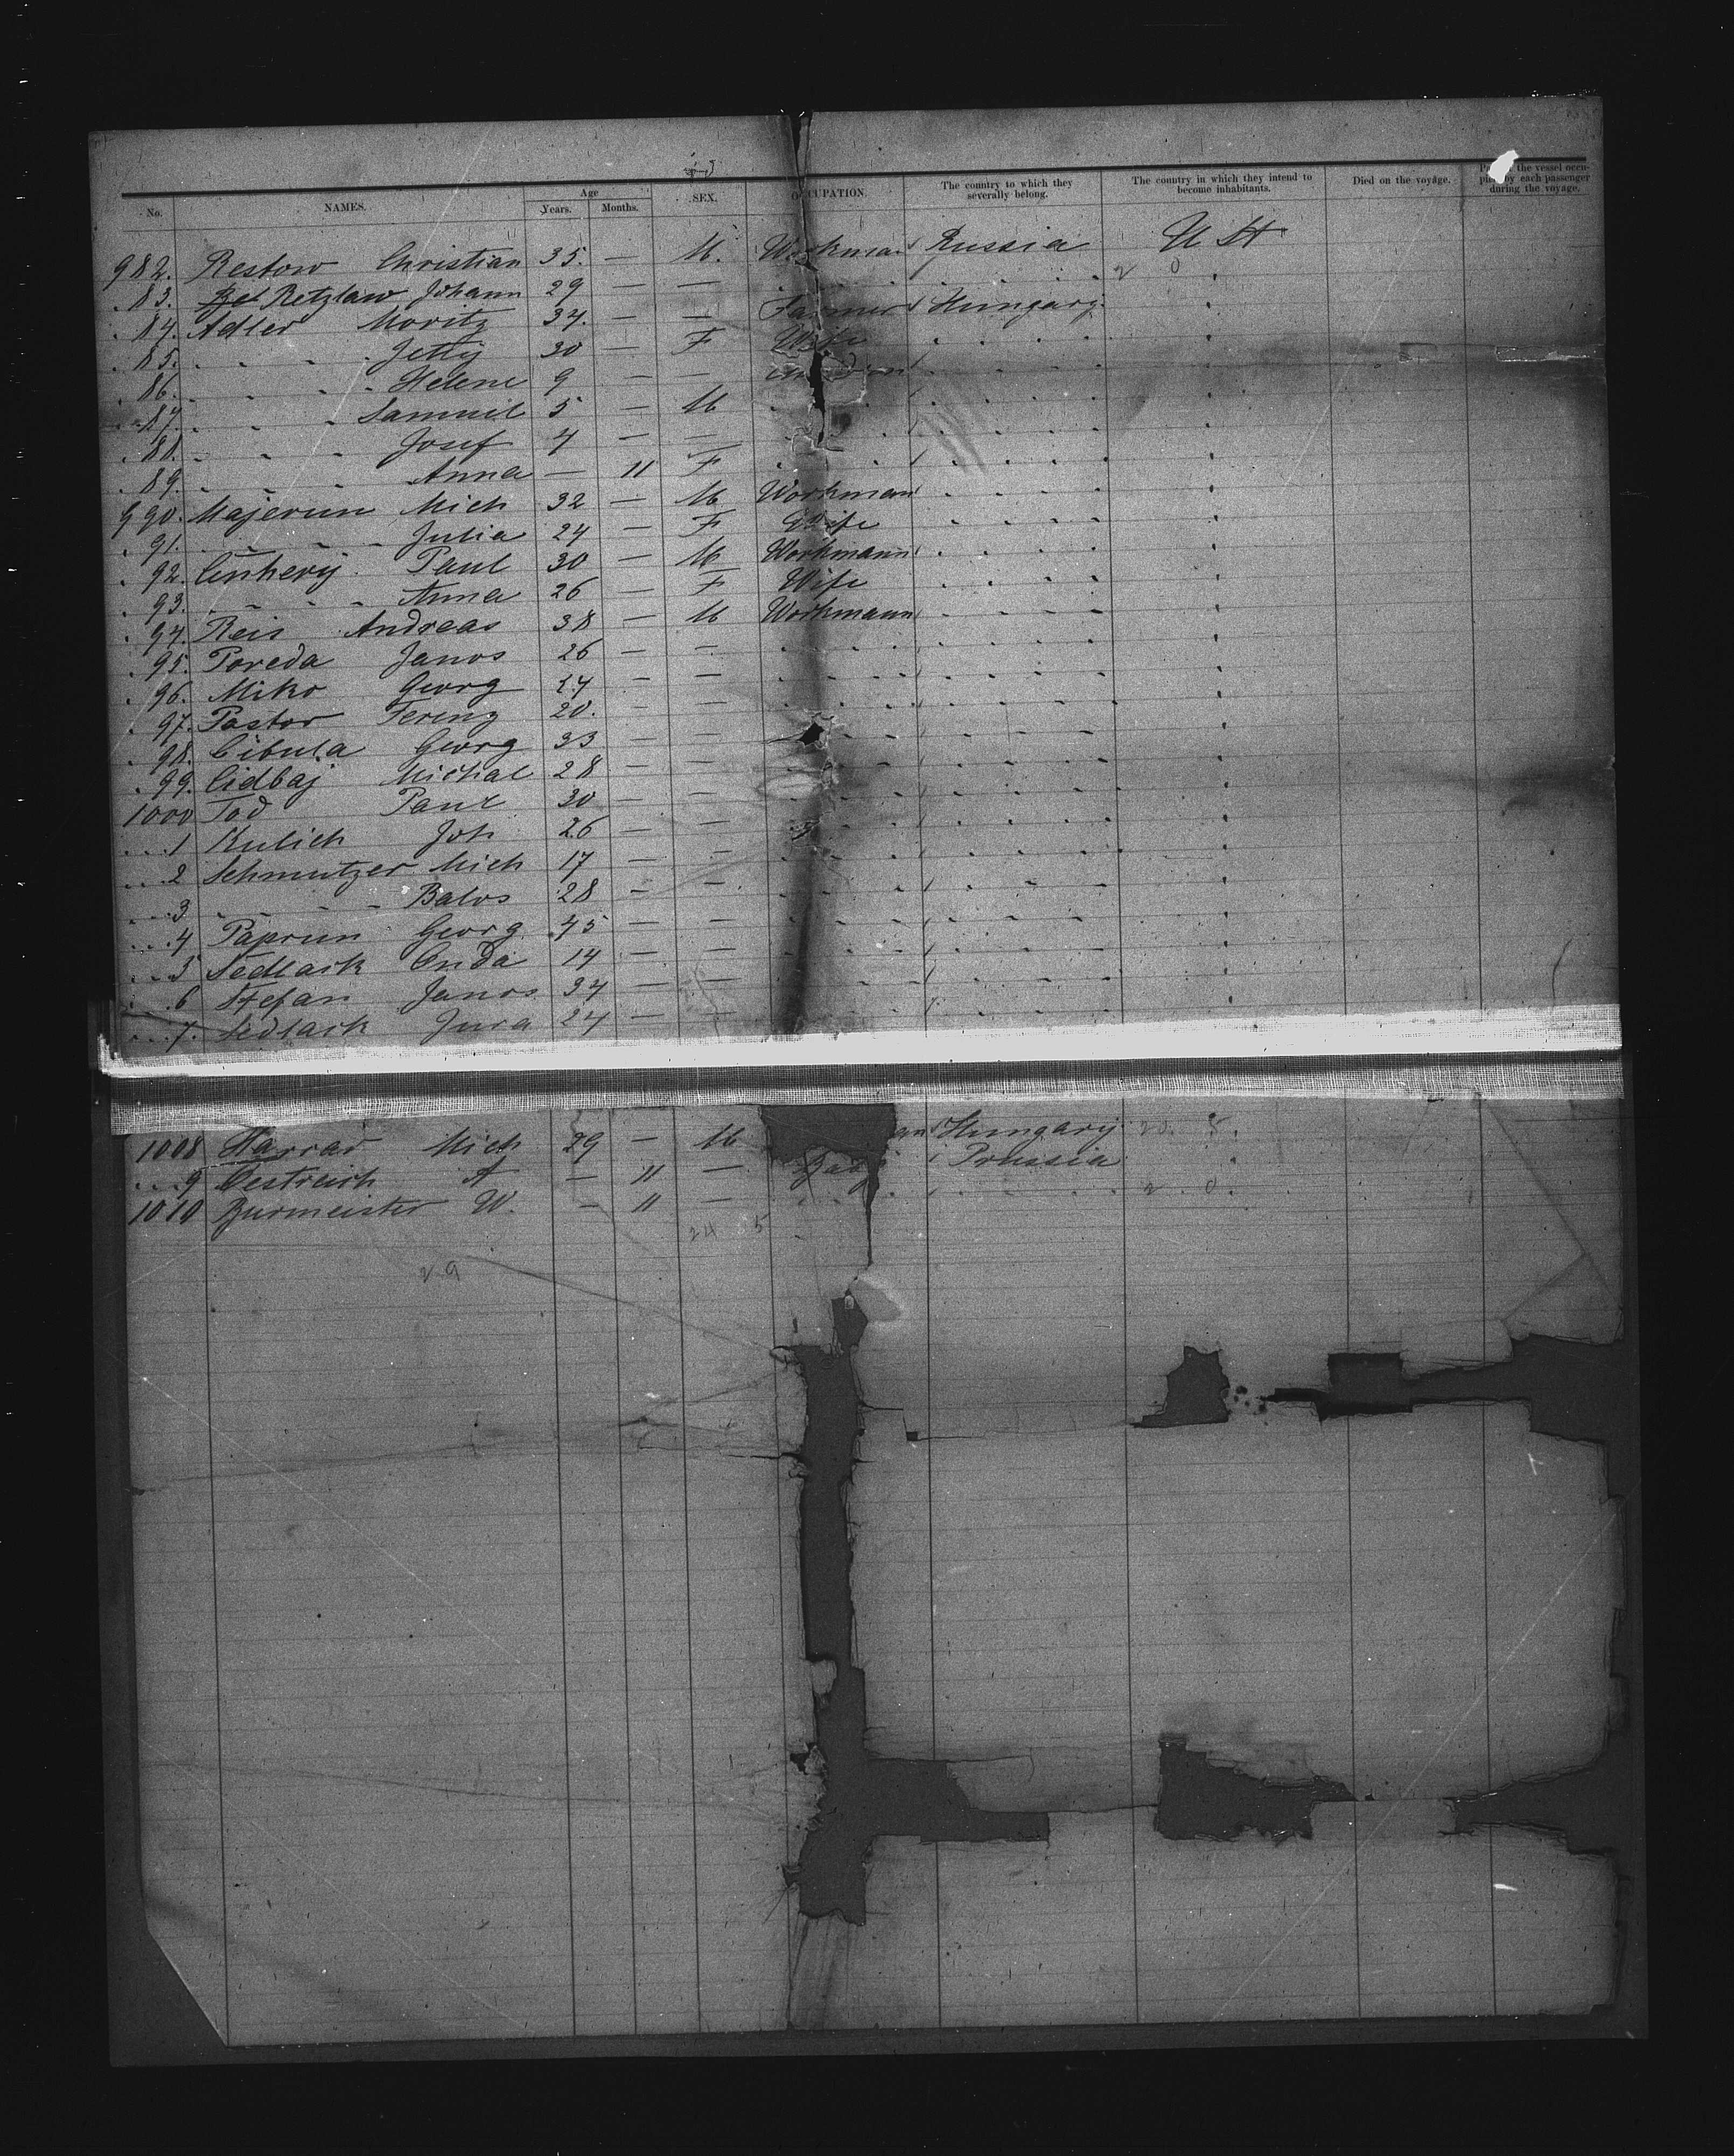 No. NAMES. Age Years. Months. SEX. OCCUPATION. The country to which they severally belong. The country in which they intend to become inhabitants. Died on the voyage. the vessel occupied by each passenger during the voyage.
982. Restow Christian 35. — M. Workman Russia U St
. 83. Retzlaw Johann 29 — — 2 0
. 84. Adler Moritz 34. — — Farmer Hungary
. 85. - - - Jetty 30 — F Wife
. 86. - - - Helene 9 — —
. 87. - - - Samuel 5 — M
. 88. - - - Josef 4 — —
. 89. - - - Anna — 11 F
990. Majerun Mich 32 — M Workman
. 91. - - - Julia 24 — F Wife
. 92. Paul 30 — M Workmann
. 93. - - - Anna 26 — F Wife
. 94. Reis Andreas 38 — M Workmann
. 95. Poreda Janos 26 — —
. 96. Miko Georg 24 — —
. 97. Pastor Ferenz 20. — —
. 98. Cibula Georg 33 — —
. 99. Cidbaj Michal 28 — —
1000 Tod Paul 30 — —
...1 Kulich Joh 26 — —
...2 Schmutzer Mich 17 — —
...3 - - - Balos 28 — —
...4 Paprun Georg 45 — —
...5 Sedlack Onda 14 — —
...6 Stefan Janos 34 — —
...7. Sedlack Jura 24 — —
1008 Harrar Mich 29 — M an Hungary 20. 5.
...9 Oestreich A — 11 — Prussia
1010 Burmeister W. — 11 — 2. 0.
24 5
29